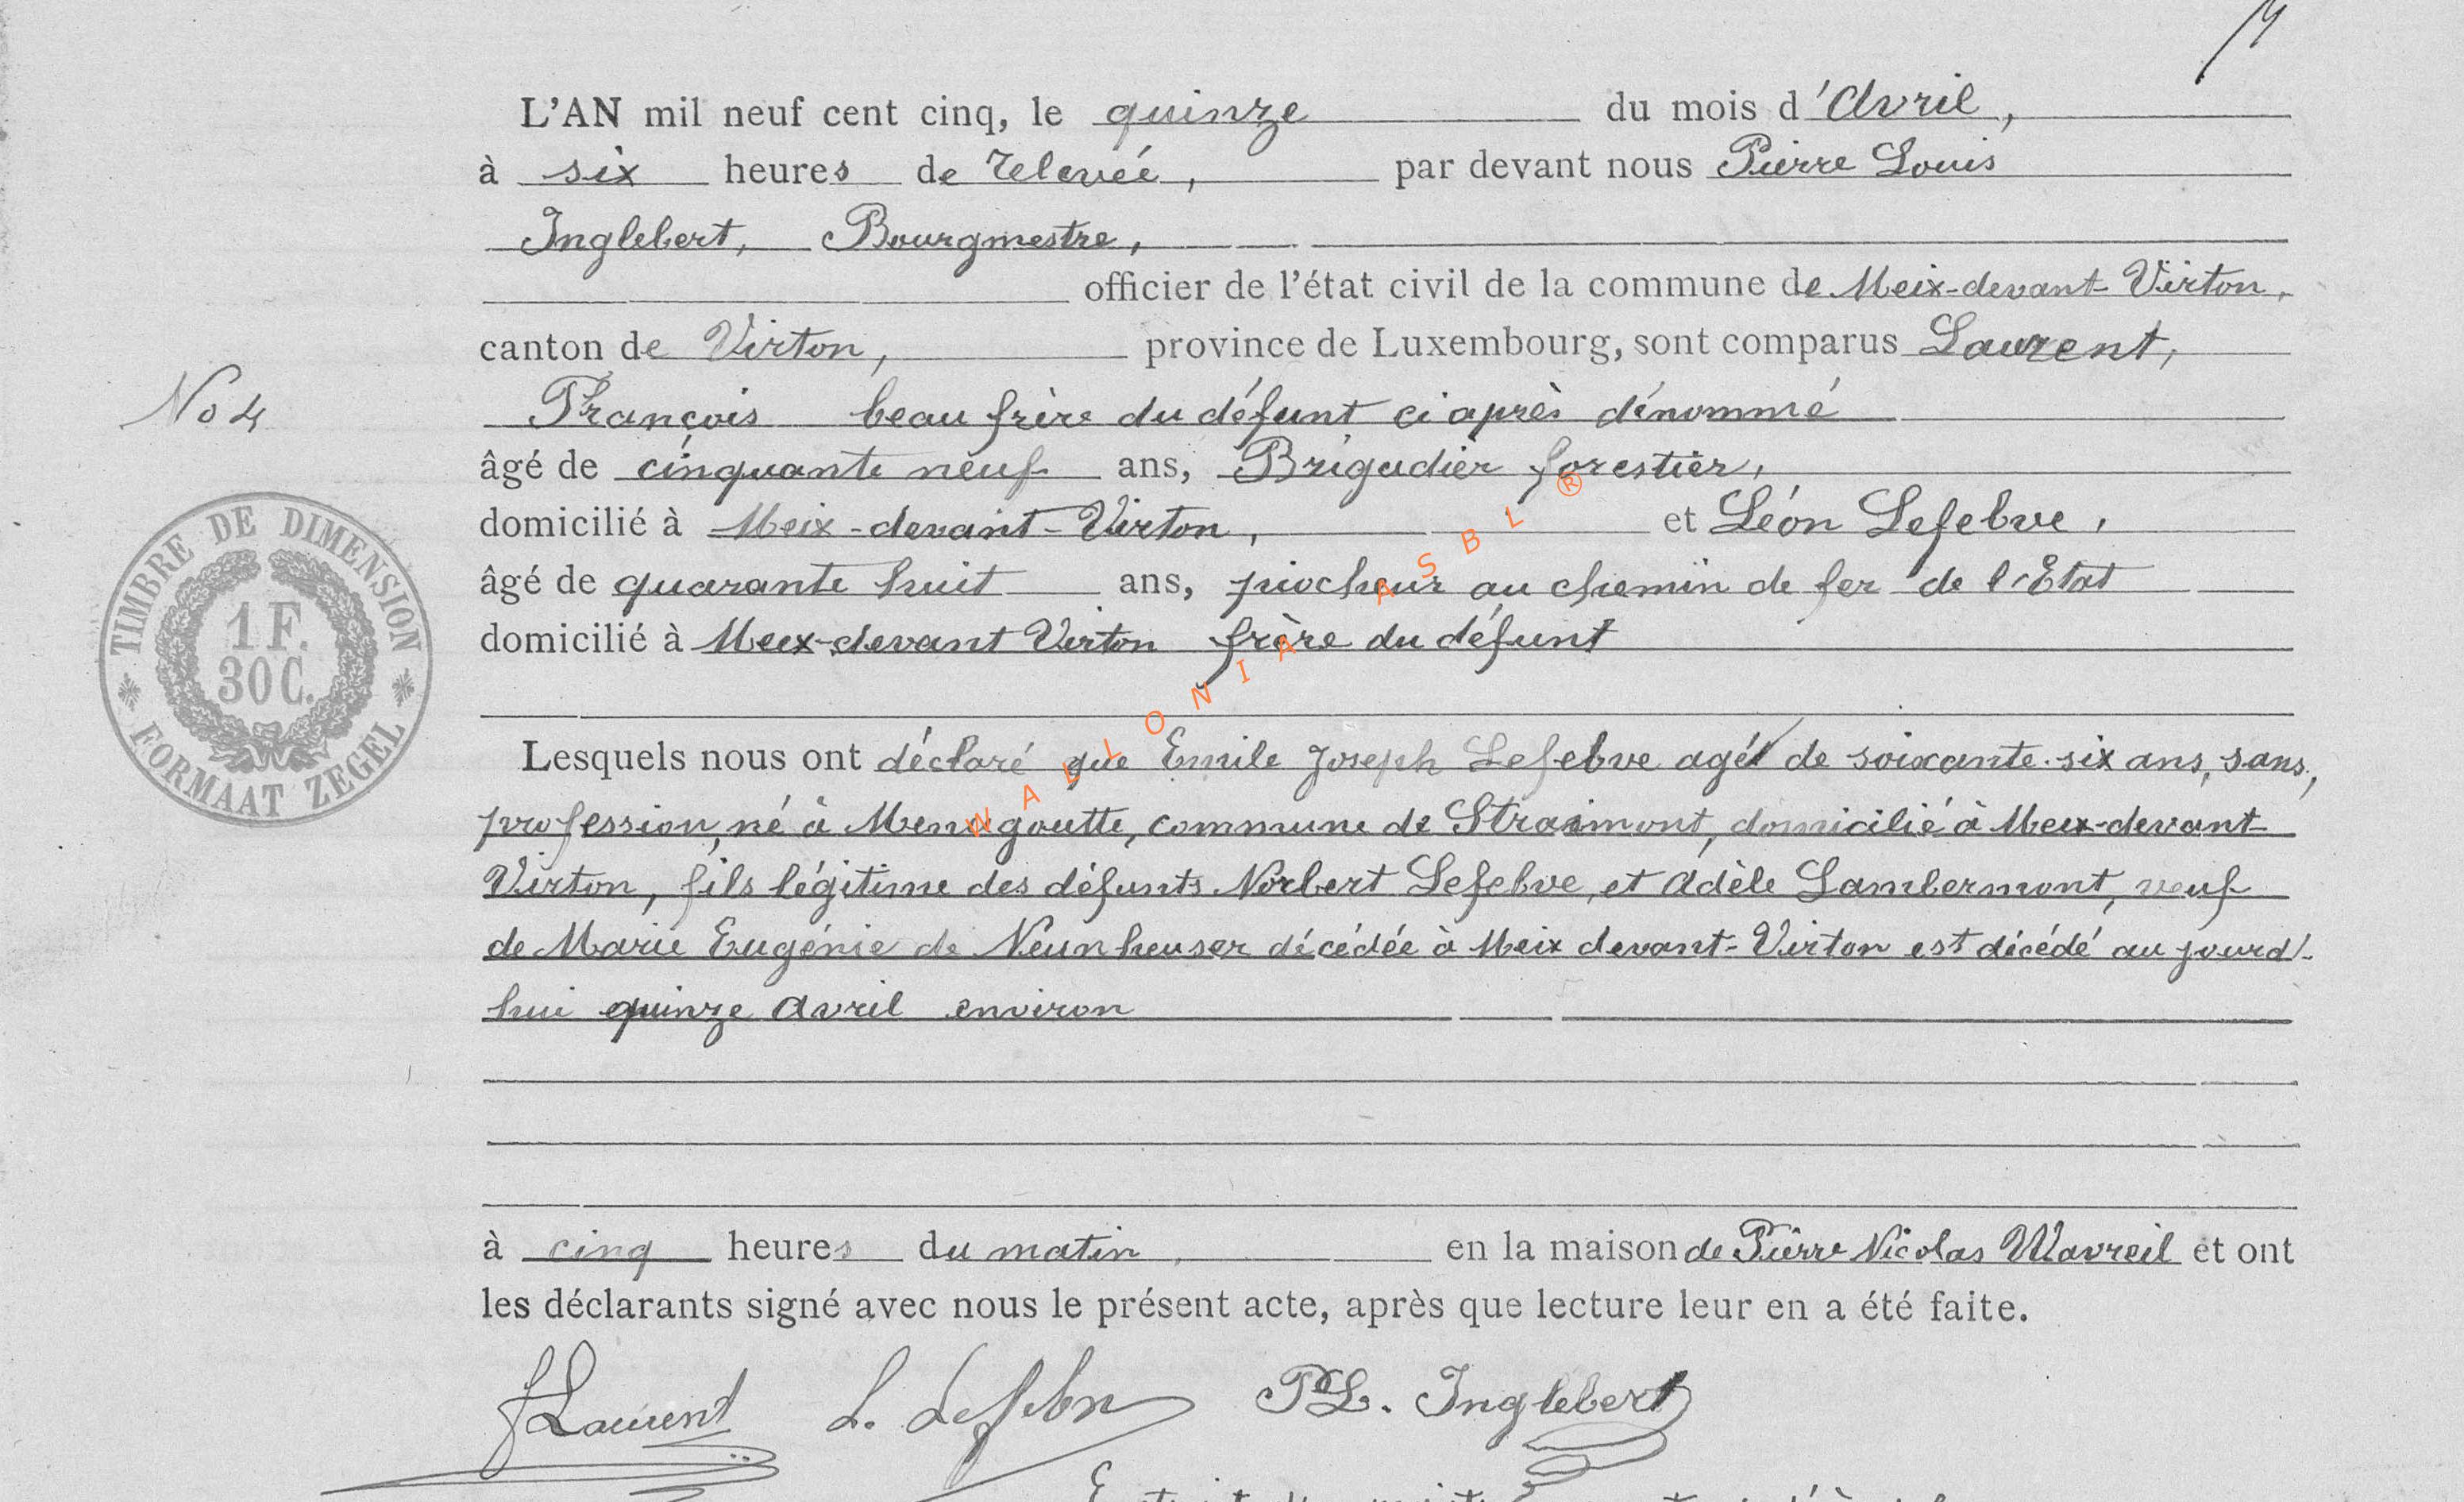 L'AN mil neuf cent cinq, le quinze du mois d'Avril,
à six heures de relevée, par devant nous Pierre Louis
Inglebert, Bourgmestre,
officier de l'état civil de la commune de Meix-devant-Virton,
canton de Virton, province de Luxembourg, sont comparus Laurent,
No 4
François beau frère du défunt ci après dénommé
âgé de cinquante neuf ans, Brigadier forestier,
domicilié à Meix-devant-Virton, et Léon Lefebve,
âgé de quarante huit ans, piocheur au chemin de fer de l'Etat
domicilié à Meix-devant Virton frère du défunt
TIMBRE DE DIMENSION
1 F.
30 C.
FORMAAT ZEGEL
WALLONIA ASBL ®
Lesquels nous ont déclaré que Emile Joseph Lefebve agé de soixante-six ans, sans,
profession, né à Menugoutte, commune de Straimont, domicilié à Meix-devant-
Virton, fils légitime des défunts Norbert Lefebve, et Adèle Lambermont, veuf
de Marie Eugénie de Neunheuser décédée à Meix devant-Virton est décédé au jourd'-
hui quinze Avril environ
à cinq heures du matin, en la maison de Pierre Nicolas Wavreil et ont
les déclarants signé avec nous le présent acte, après que lecture leur en a été faite.
f Laurent L. Lefebve PL. Inglebert